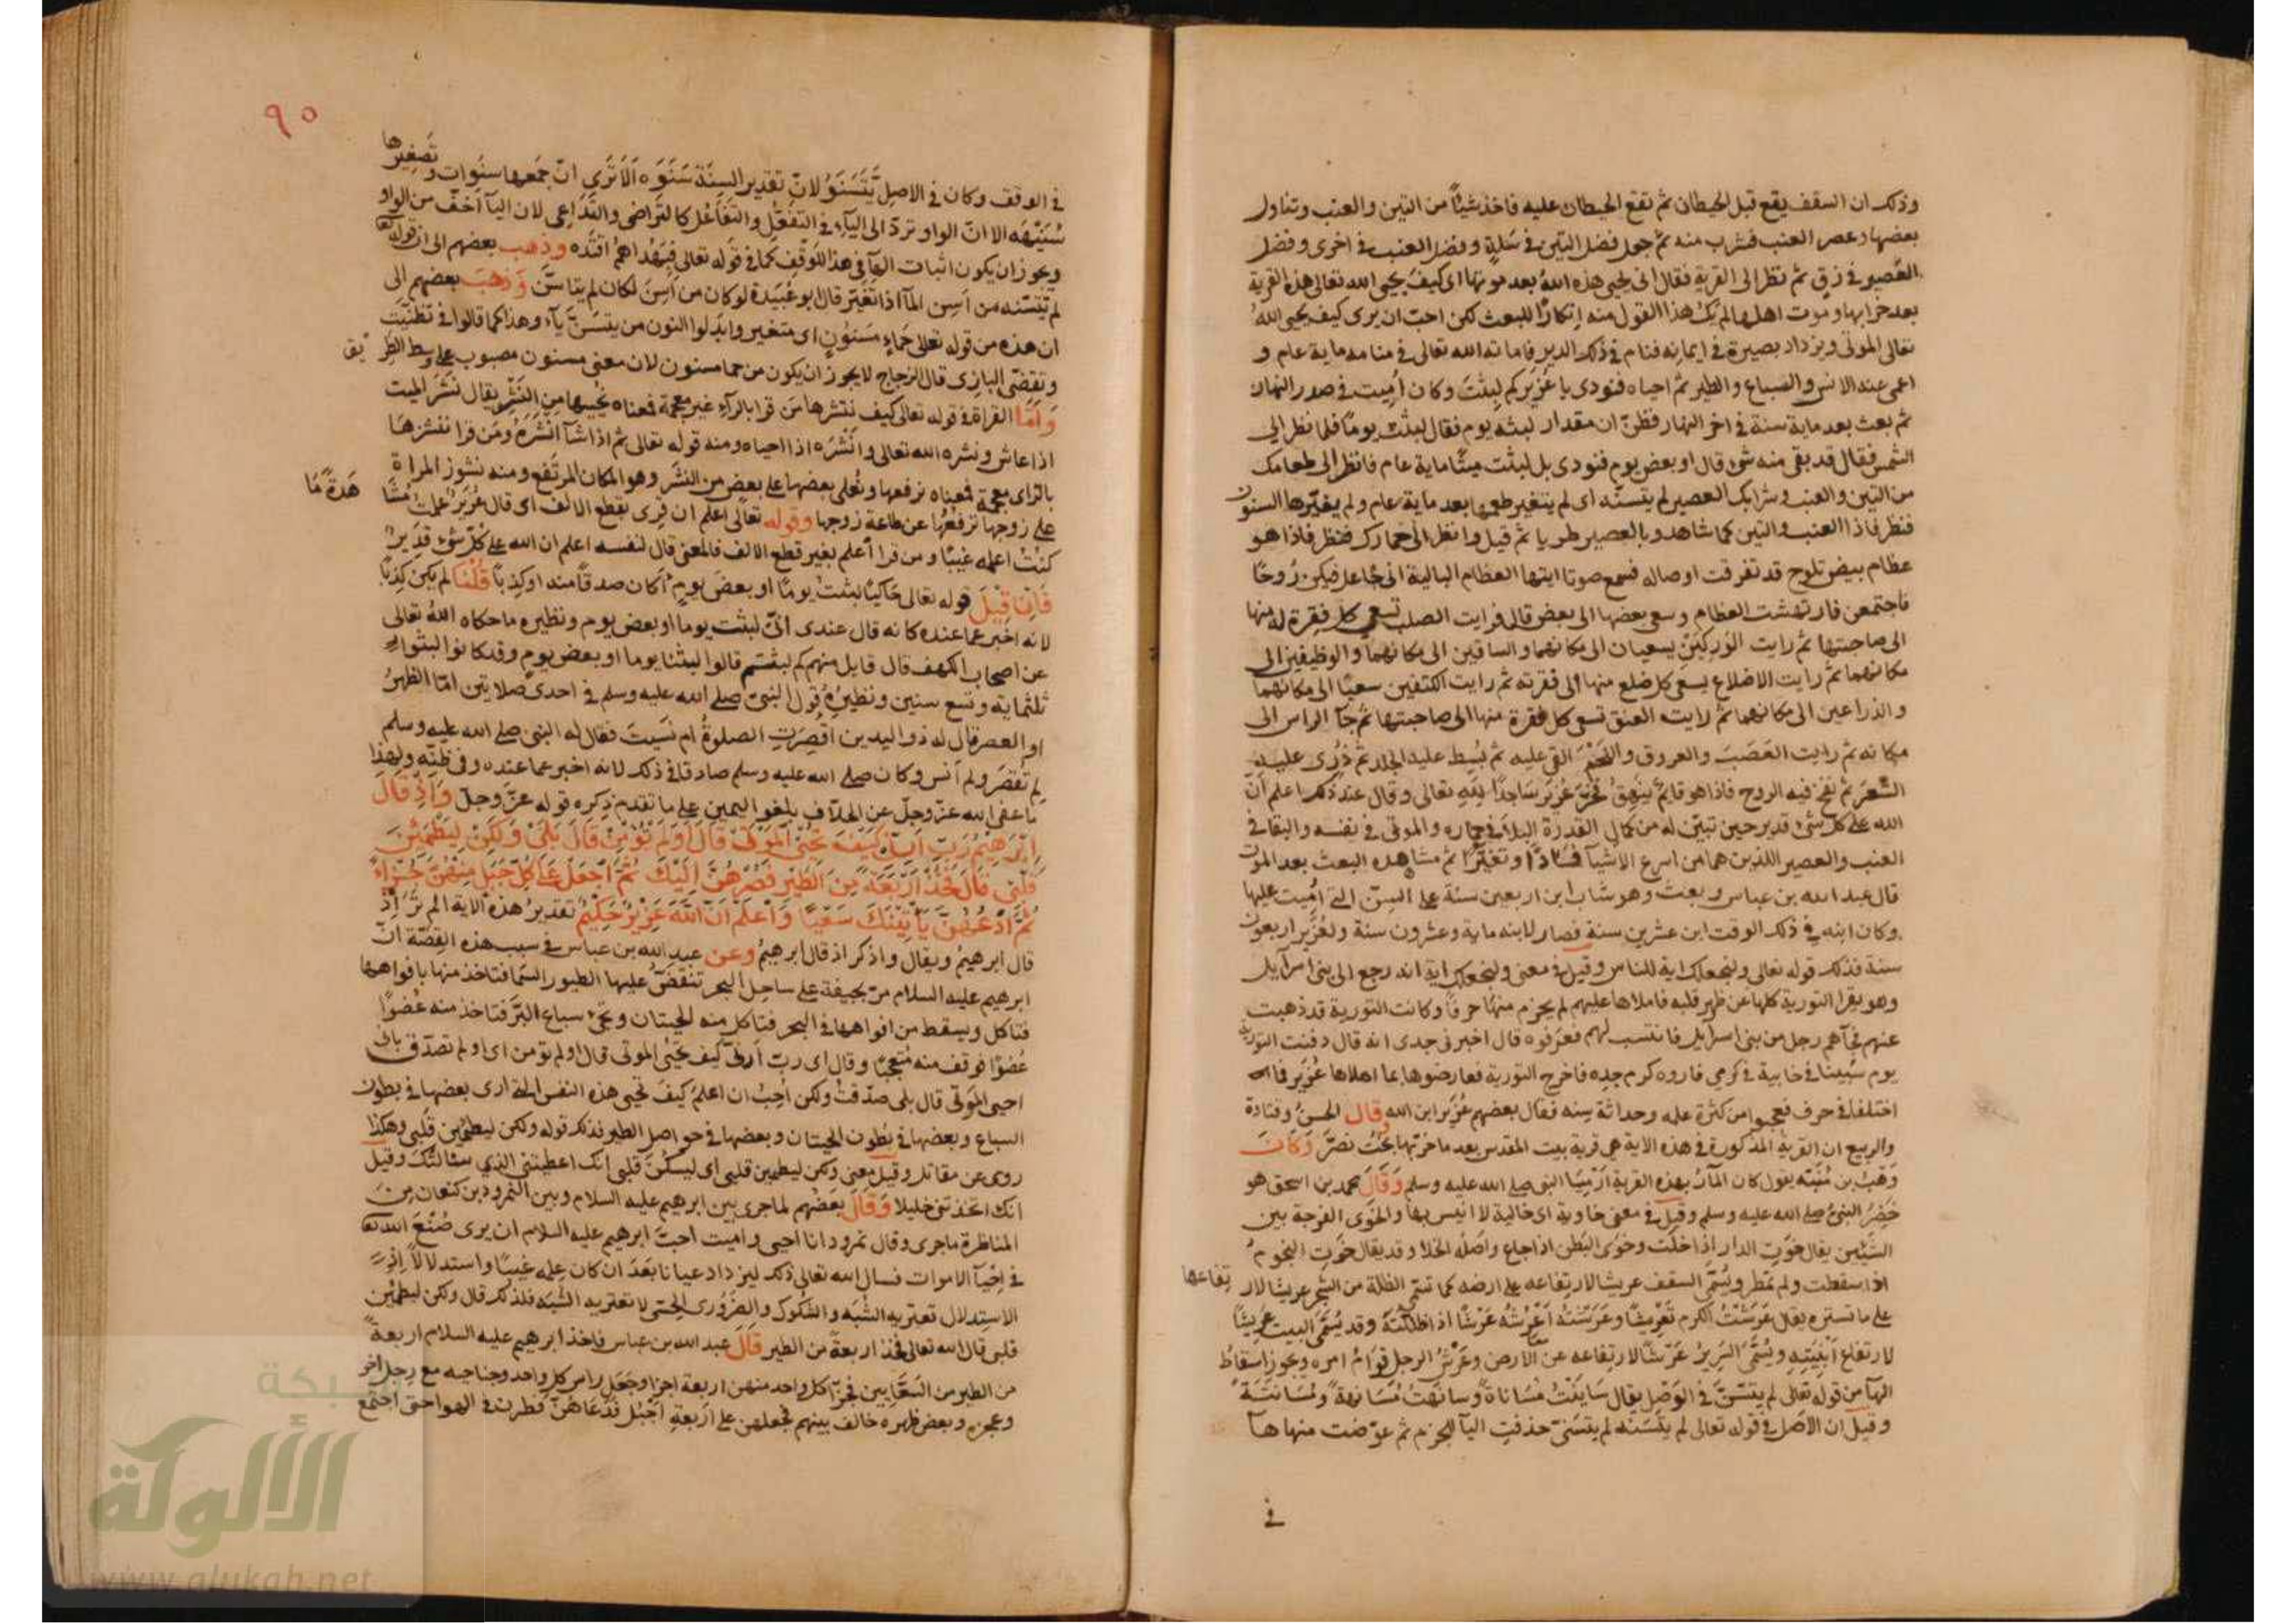 وذلك ان السقف يقع قبل الحيطان ثم تقع الحيطان عليه فاخذ شيئًا من التين والعنب وتناول
بعضها وعصر العنب فشرب منه ثم جعل فضل التين في سَلةٍ وفضل العنب في اخرى وفضل
العَصير في زقٍ ثم نظر الى القرية فقال انى يحيى هذه اللهُ بعد موتها اى كيفَ يحيى الله تعالى هذه القرية
بعد خرابها وموت اهلها لم يَكُ هذا القول منه اِنكارًا للبعث لكن احبّ ان يرى كيف يحيى اللهُ
تعالى الموتى ويزداد بصيرة في ايمانه فنام في ذلك الدير فاماته الله تعالى في منامه ماية عام و
اعمى عنه الانس والسباع والطير ثم احياه فنودى يا عُزَير كم لبِثتَ وكان اُمِيت في صدر النهار
ثم بعث بعد ماية سنة في اخر النهار فظنّ ان مقدار لبثه يوم فقال لبثتُ يومًا فلما نظر الى
الشمس فقال قد بقى منه شئ قال او بعض يوم فنودى بل لبثت ميتًا ماية عام فانظر الى طعامك
من التين والعنب وشرابك العصير لم يتسنّه اى لم يتغير طعمها بعد ماية عام ولم يغيّرها السنون
فنظر فاذا العنب والتين كما شاهد وبالعصير طريا ثم قيل وانظر الى حمارك فنظر فاذا هو
عظام بيض تلوح قد تفرقت اوصاله فسمع صوتا ايتها العظام البالية انى جاعل فيكن رُوحًا
فاجتمعن فارتهشت العظام وسعى بعضها الى بعض قال فرايت الصلب تسعى كل فِقرة له منها
الى صاحبتها ثم رايت الوَرِكَين يسعيان الى مكانهما والساقين الى مكانهما والوظيفين الى
مكانهما ثم رايت الاضلاع يسعى كل ضلع منها الى فقرته ثم رايت الكتفين سعيًا الى مكانهما
والذراعين الى مكانهما ثم رايت العنق تسعى كل فقرة منها الى صاحبتها ثم جآ الراس الى
مكانه ثم رايت العَصَبَ والعروق واللحْمَ القى عليه ثم بُسِط عليه الجلد ثم ذُرِى عليه
الشَّعرَ ثم نفخ فيه الروح فاذا هو قايمٌ ينهق فخرّ عُزَير ساجدًا لله تعالى وقال عند ذلك اعلم انّ
الله على كل شئ قدير حين تبيّن له من كمال القدرة البلآ في حماره والموتى في نفسه والبقا في
العنب والعصير اللذين هما من اسرع الاشيآ فسَادًا وتغيّرًا ثم مشاهده البعث بعد الموت
قال عبد الله بن عباس وبعث وهو شاب ابن اربعين سنة على السن التي اُمِيت عليها
وكان ابنه في ذلك الوقت ابن عشرين سنة فصار لابنه ماية وعشرون سنة ولعُزَير اربعون
سنة فذلك قوله تعالى ولنجعلك اية للناس وقيل في معنى ولنجعلك اية انه رجع الى بنى اسرآيل
وهو يقرا التورية كلها عن ظهر قلبه فاملاها عليهم لم يخرم منها حرفًا وكانت التورية قد ذهبت
عنهم فجآهم رجل من بنى اسرآيل فانتسب لهم فعرفوه قال اخبرنى جدى انه قال دفنت التورية
يوم سُبِينا في خابية في كرمى فاروه كرم جده فاخرج التورية فعارضوها بما املاها عُزَير فما
اختلفا في حرف فعجبوا من كثرة علمه وحداثة سِنه فقال بعضهم عُزَير ابن الله وقال الحسنُ وقتادة
والربيع ان القرية المذكورة في هذه الاية هي قرية بيت المقدس بعد ما خربها بخْتُ نصَّرَ وَكَانَ
وَهبُ بن مُنَبّه يقول كان المآرّ بهذه القرية اَرْمِيَا النبى صلى الله عليه وسلم وَقَالَ محمد بن اسحق هو
خَضِرُ النبىُ صلى الله عليه وسلم وقيل في معنى خاوية اى خالية لا انيس بها والخَوَى الفرجة بين
الشيئين يقال خوَتِ الدار اِذا خلت وخوَى البَطن اذا جاع واصله الخلا وقد يقال خَوَتِ النجومُ
اذا سقطت ولم تمطر ويُسَمَّى السقف عريشا لارتفاعه على ارضه كما تسمى الظلة من الشجر عريشا لار تِفاعها
على ما تستره يقال عَرَشْتُ الكرم تعْرِيشًا وعَرَشتهُ اَعْرُشُه عَرْشًا اذ اظللتهُ وقد يُسَمَّى البيت عريشًا
لارتفاع اَبنِيَتِهِ ويُسَمَّى السَرِيرُ عَرْشًا لارتفاعه عن الارض وعَرْشُ الرجل قِوَامُ امره ويجوز اسقاط
الهآ من قوله تعالى لم يتسنَّ في الوَصْل يقال سَايَنْتُ مُسَاناةً وسانَهتُ مُسَانهةً ومُسَانَتَةً
وقيل ان الاصل في قوله تعالى لم يتَسَنّه لم يتسَنّى حذفت اليآ للجزم ثم عوّضت منها هآ
في
٩٠
في الوقف وكان في الاصل يَتَسَنَّوُ لانّ تقدير السِنَة سَنَوَه اَلَا تَرَى انّ جَمعها سنَوات وتصغيرها
سُنَيْهَه الا انّ الواو تردّ الى اليآء في التفعّل والتفاعُل كالتراضى والتدَاعى لان اليآ اخفّ من الواو
ويجوز ان يكون اثبات الهآ في هذا للوَقف كما في قوله تعالى فبِهُداهمُ اقتَدِه وذهب بعضهم الى ان قوله تعالى
لم يتَسَنّه من اَسِن المآ اذا تغيّر قال ابو عُبَيدة لو كان من اَسِنَ لكان لم يتاسَّن وَذهَبَ بعضهم الى
ان هذه من قوله تعالى حَمَاءٍ مَسنُونٍ اى متغير وابدلوا النون من يتسنَّن يآء وهذا كما قالوا في تظنّيت
وتقضّى البازى قال الزجاج لا يجوز ان يكون من حما مسنون لان معنى مسنون مصبوب على وسط الطَّرِيق
وَامَّا القراة في قوله تعالى كيف ننشرها مَن قرا بالرآء غير معجمة فمعناه نُحييها من النشر يقال نشَر الميت
اذا عاش ونشره الله تعالى وانشَرَه اذا احياه ومنه قوله تعالى ثم اذا شآ انشَرَهُ ومَن قرا ننشزها
بالزاى معجمة فمعناه نرفعها ونُعلى بعضها على بعض من النشَز وهو المكان المرتفع ومنه نشوز المراة
على زوجها ترفعُها عن طاعة زوجها وقوله تعالى اعلم ان قرى بقطع الالف اى قال عُزَيرٌ علمتُ مُشَا هَدةً مَا
كنتُ اعلمه غيبًا ومن قرا اعلم بغير قطع الالف فالمعنى قال لنفسه اعلم ان الله على كلّ شئ قدَيرٌ
فَاِن قِيْلَ قوله تعالى حَاكيًا لبثتُ يومًا او بعضَ يومٍ اَكان صدقًا منه او كذِبًا قُلْنَا لم يكن كِذبًا
لانه اخبر عما عنده كانه قال عندى انّى لبثت يوما او بعض يوم ونظيره ما حكاه اللهُ تعالى
عن اصحاب الكهف قال قايل منهم كم لبثتم قالوا لبثنا يوما او بعض يومٍ وقد كانوا لبثوا
ثلثماية وتسع سنين ونظيرُه قول النبىّ صلى الله عليه وسلم في احدى صلاتين امّا الظهرُ
او العصر قال له ذو اليدين اقُصِرَتِ الصلوةُ ام نسَيتَ فقال له النبى صلى الله عليه وسلم
لم تُقصَر ولم اَنس وكان صلى الله عليه وسلم صادقا في ذلك لانه اخبر عما عنده وفى ظنّه ولهذا
ما عفى الله عزّ وجلّ عن الحلاف بلغو اليمين على ما تقدم ذِكره قوله عزّ وجلّ وَاِذْ قَالَ
اِبْرَهِيْمُ رَبِّ اَرِنِى كَيْفَ تُحْىِ الْمَوْتَى قَالَ اَوَلَمْ تُؤْمِنْ قَالَ بَلَى وَلكِنْ لِيَطْمَئِنَّ
قَلْبِى قَالَ فَخُذْ اَرْبَعَةً مِنَ الطَّيْرِ فَصُرْهُنَّ اِلَيْكَ ثُمَّ اجْعَلْ عَلَى كُلِّ جَبَلٍ مِنْهُنَّ جُزْءًا
ثُمَّ ادْعُهُنَّ يَأْتِيْنَكَ سَعْيًا وَاعْلَمْ اَنَّ اللهَ عَزِيْزٌ حَكِيْمٌ تقديرُ هذه الاية الم ترَ اِذْ
قال ابرهيمُ ويقال واذكر اذ قال ابرهيمُ وعن عبد الله بن عباس في سبب هذه القِصّة انّ
ابرهيم عليه السلام مرّ بجيفة على ساحِل البحر تنقضّ عليها الطيور السما فتاخذ منها بافواهها
فتاكل ويسقط من افواهها في البحر فتاكل منه الحيتان وتجئ سباع البَرّ فتاخذ منه عُضوًا
عُضوًا فوقف منه مُتعجبًا وقال اى ربّ ارنى كيف تحيْى الموتى قال اولم تؤمن اى اولم تصدّق بانى
احيى المَوتى قال بلى صدّقتُ ولكن اُحِبُ ان اعلمَ كيفَ تحيى هذه النفس التى ارى بعضها في بطون
السباع وبعضها في بُطون الحيتان وبعضها في حواصل الطير فذلك قوله ولكن ليطمئن قَلبى وهكذا
روى عن مقاتل وقيل معنى ولكن ليطمين قلبى اى ليَسْكُنَ قلبى انك اعطيتنى الذي سئالتُكَ وقيل
انك اتخذتنى خليلا وَقَالَ بعضُهم لما جرى بين ابرهيم عليه السلام وبين النمرود بن كنعان مِنَ
المناظرة ما جرى وقال نمرود انا احيى واميت احبّ ابرهيم عليه السلام ان يرى صُنْعَ الله تعالى
في اِحيآ الاموات فسال الله تعالى ذلك ليزداد عيانا بَعَدَ ان كان عِلمه غيبًا واستدلالًا
الاستِدلال تعتريه الشُبَه والشكوك والضرُورى الحِسّى لا تعتريه الشُبَه فلذلك قال ولكن ليطمئن
قلبى قال الله تعالى فخذ اربعةً من الطير قَالَ عبد الله بن عباس فاخذ ابرهيم عليه السلام اربعةً
من الطير فجزّا كل واحد منهن اربعة اجزا وجَعَل راس كل واحد وجناحه مع رِجل اخر
وعجزه وبعض ظهره خالف بينهم فجعلهن على اَربعةِ اَجبُل فدَعَاهنّ فطرن في الهوا حتى اجتمع
شبكة
الألوكة
www.alukah.net